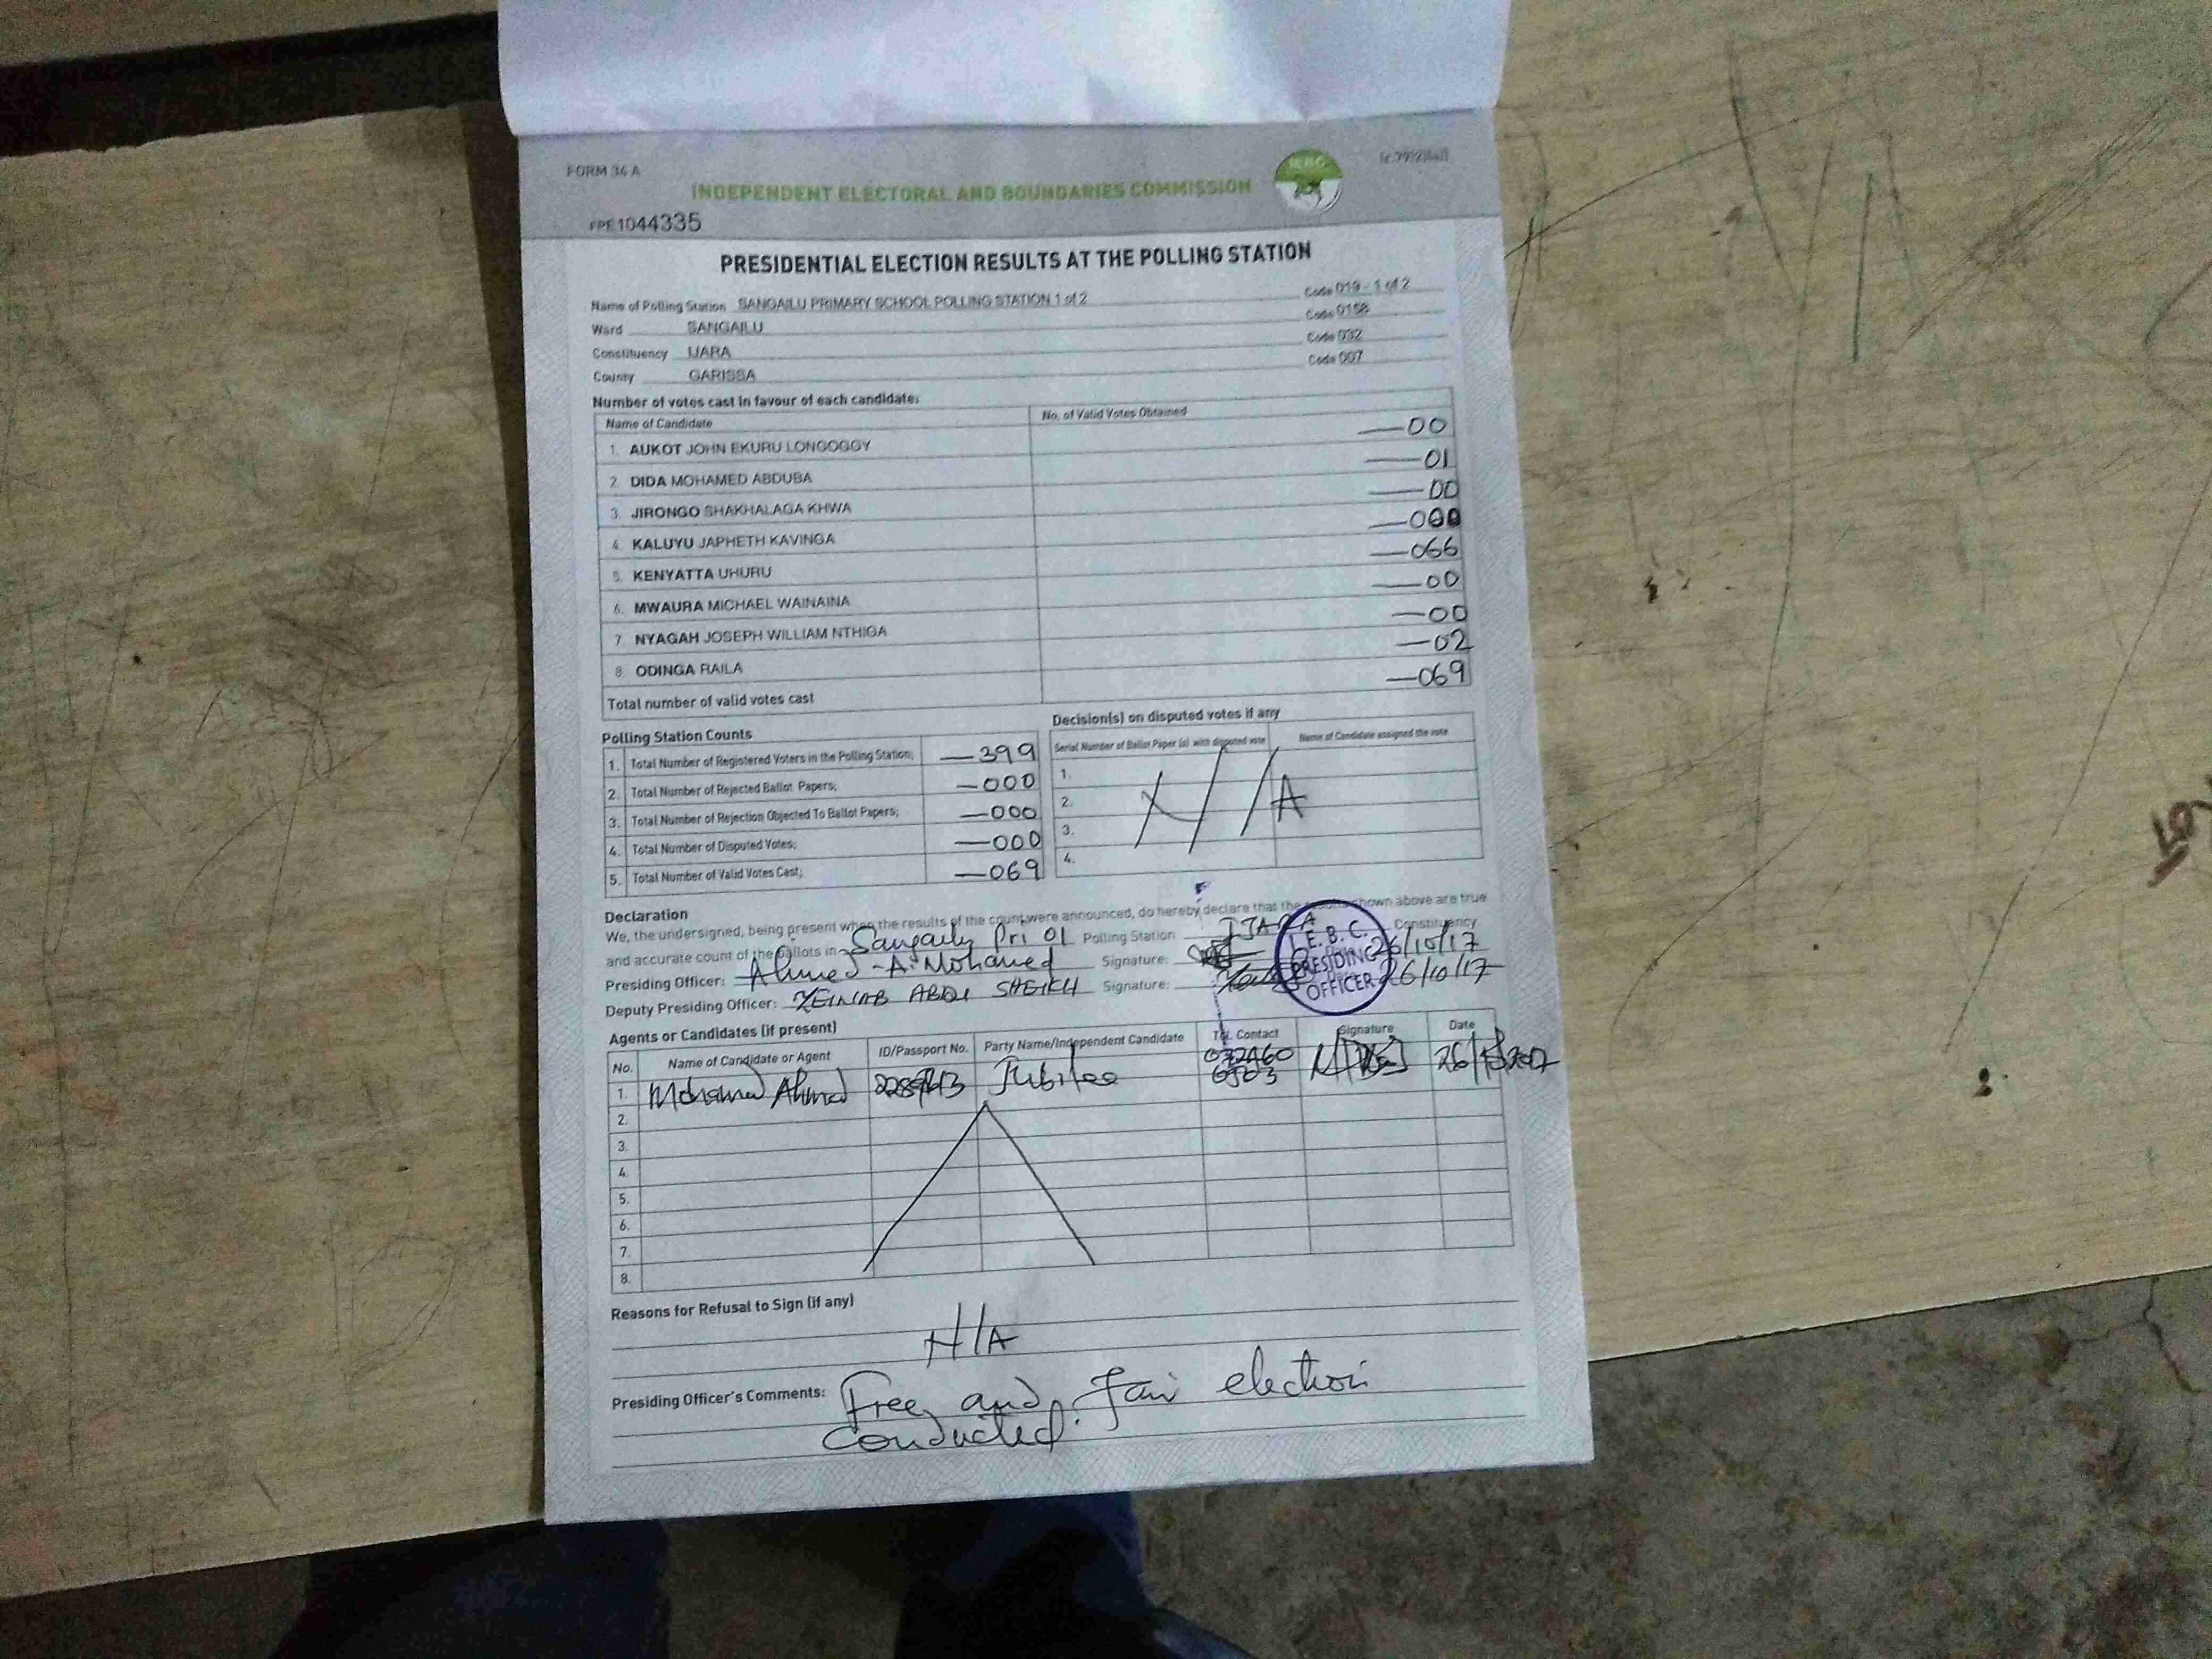 FORM 34 A
INDEPENDENT ELECTORAL AND BOUNDARIES COMMISSION
FPE1044335
PRESIDENTIAL ELECTION RESULTS AT THE POLLING STATION
Name of Polling Station SANGAILU PRIMARY SCHOOL POLLING STATION 1 of 2 Code 019 - 1 of 2
Ward SANGAILU Code 0158
Constituency IJARA Code 032
County GARISSA Code 007
Number of votes cast in favour of each candidate:
Name of Candidate No. of Valid Votes Obtained
1. AUKOT JOHN EKURU LONGOGGY —00
2. DIDA MOHAMED ABDUBA —01
3. JIRONGO SHAKHALAGA KHWA —00
4. KALUYU JAPHETH KAVINGA —000
5. KENYATTA UHURU —066
6. MWAURA MICHAEL WAINAINA —00
7. NYAGAH JOSEPH WILLIAM NTHIGA —00
8. ODINGA RAILA —02
Total number of valid votes cast —069
Polling Station Counts
1. Total Number of Registered Voters in the Polling Station; —399
2. Total Number of Rejected Ballot Papers; —000
3. Total Number of Rejection Objected To Ballot Papers; —000
4. Total Number of Disputed Votes; —000
5. Total Number of Valid Votes Cast; —069
Decision(s) on disputed votes if any
Serial Number of Ballot Paper (s) with disputed vote Name of Candidate assigned the vote
1.
2. N/A
3.
4.
Declaration
We, the undersigned, being present when the results of the count were announced, do hereby declare that the results shown above are true
and accurate count of the ballots in Sangailu Pri 01 Polling Station IJARA Constituency
Presiding Officer: Ahmed A. Mohamed Signature: 26/10/17
Deputy Presiding Officer: ZEINAB ABDI SHEIKH Signature: 26/10/17
I.E.B.C.
PRESIDING
OFFICER
Agents or Candidates (if present)
No. Name of Candidate or Agent ID/Passport No. Party Name/Independent Candidate Tel. Contact Signature Date
1. Mohamed Ahmed Jubilee
2.
3.
4.
5.
6.
7.
8.
Reasons for Refusal to Sign (if any)
N/A
Presiding Officer's Comments: Free and Fair election
conducted.